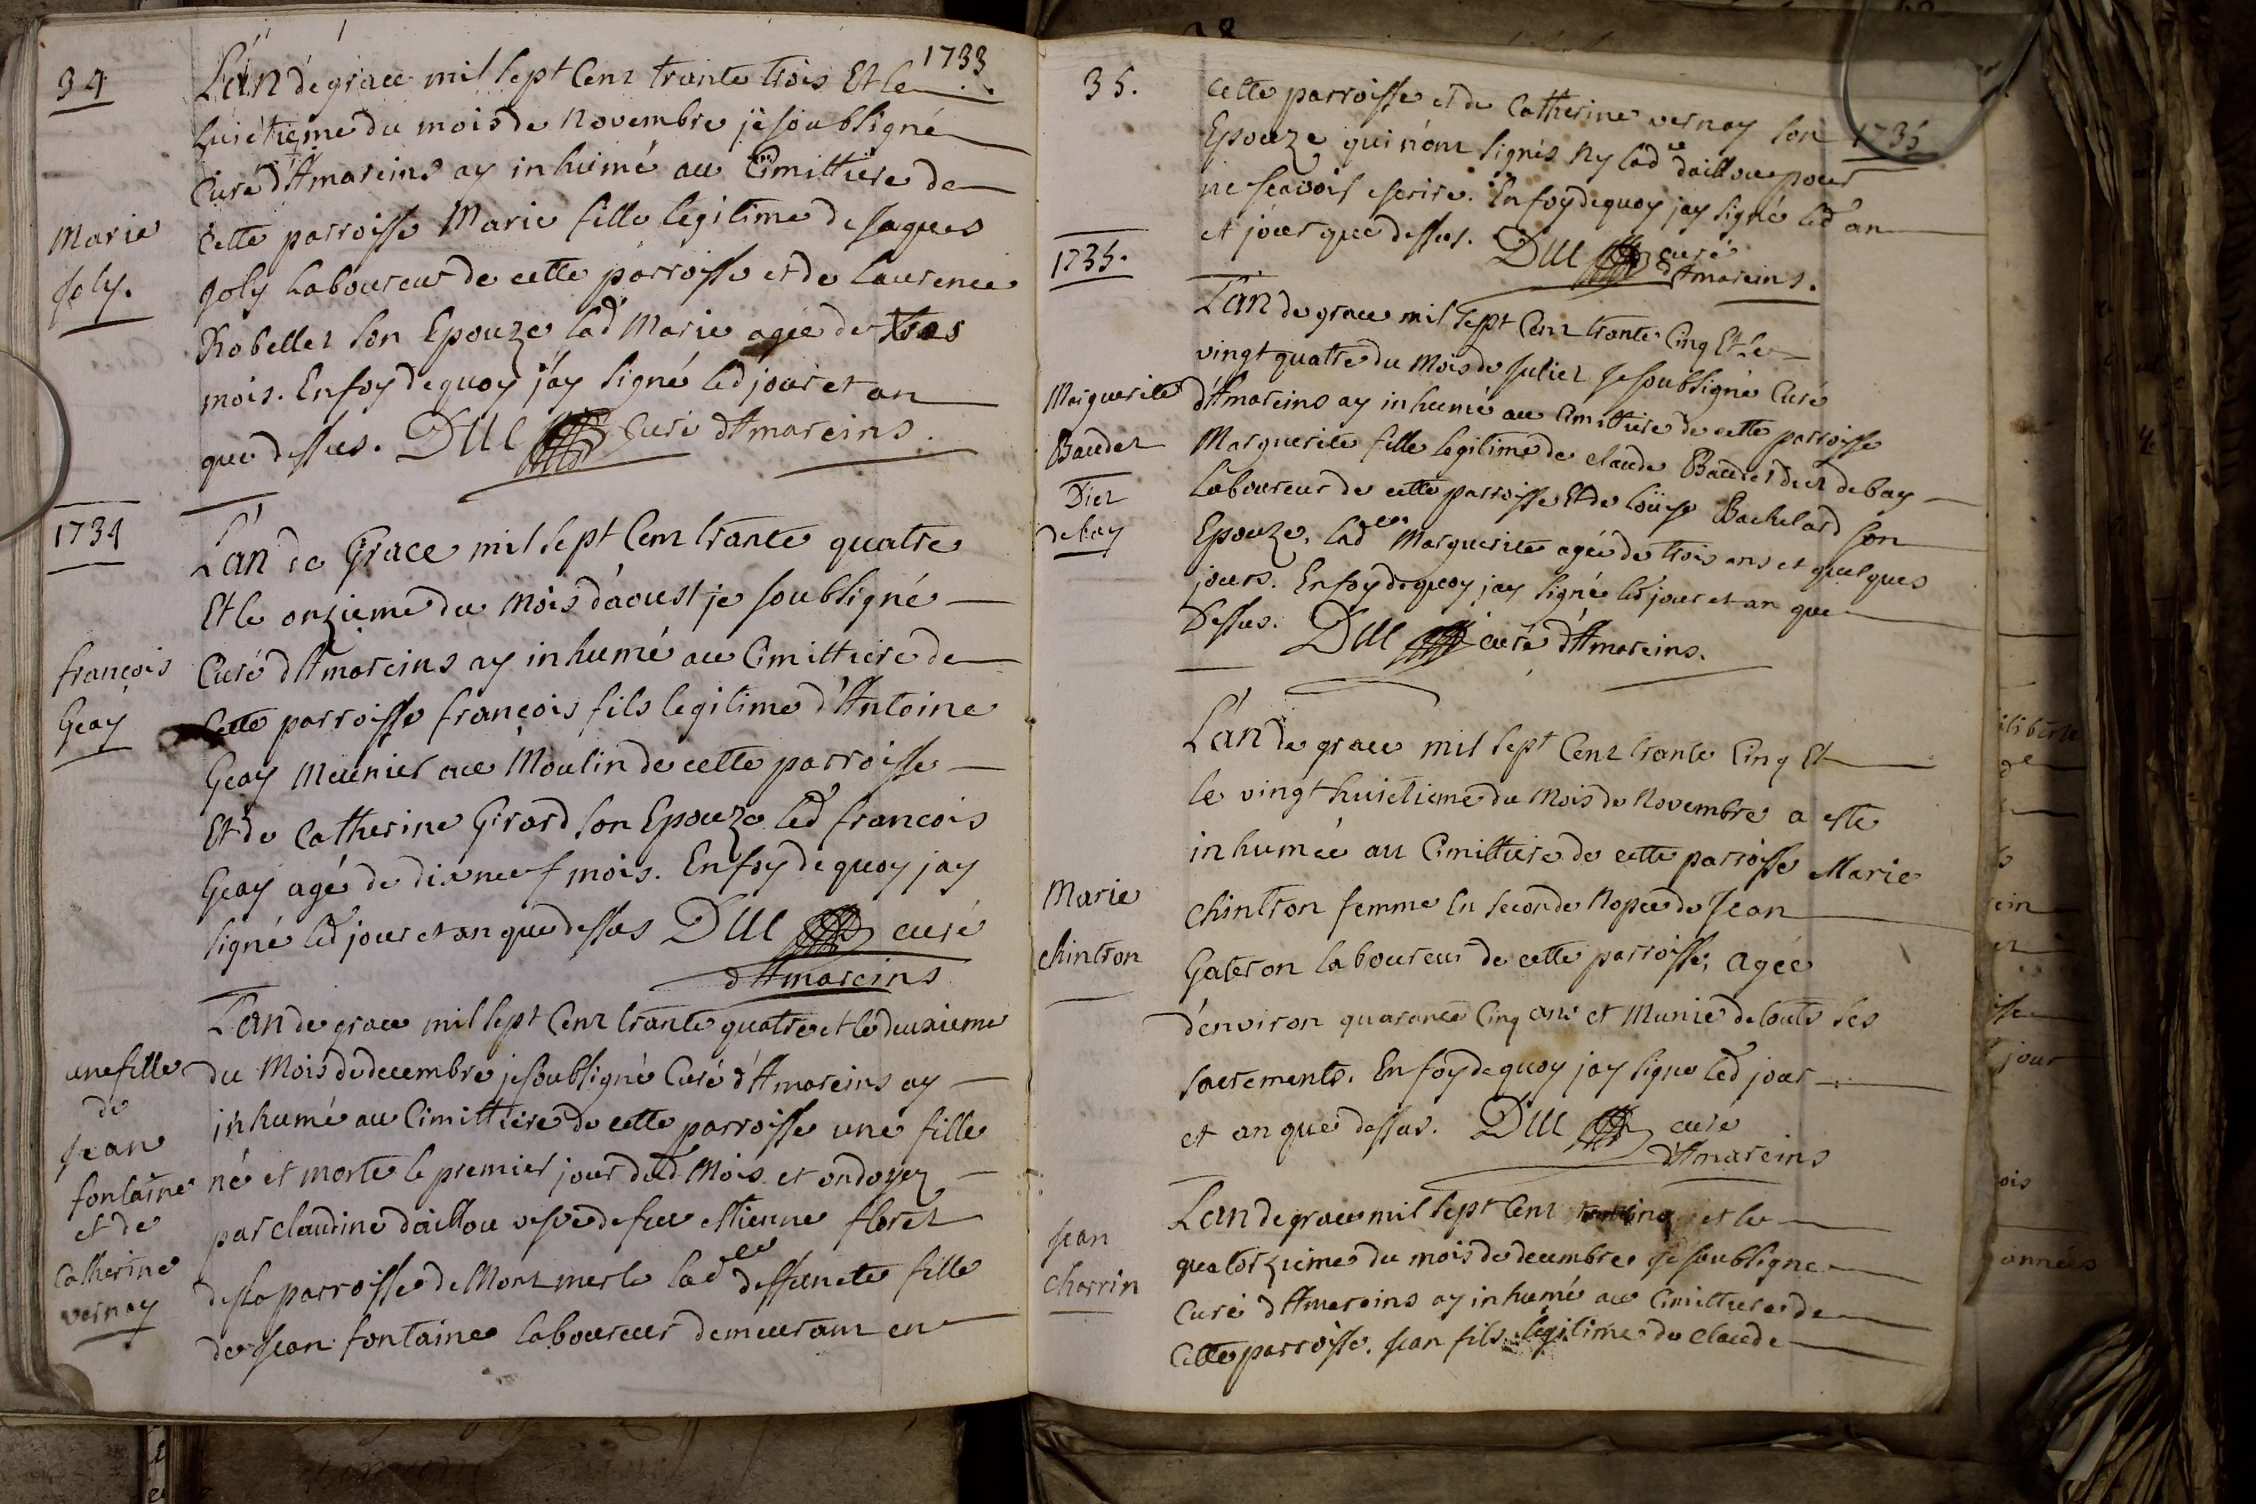 34
1733
L'an de grace mil sept Cent trante trois Et le
huictieme du mois de Novembre je soubsigné
Curé d'Amareins ay inhumé au Cimittiere de
Cette parroisse Marie fille legitime de Jaques
Joly Laboureur de cette parroisse et de Laurence
Robellet son Epouze lad Marie agée de trois
mois. En foy de quoy j'ay signé led jour et an
que dessus. Curé d'Amareins.
Marie
Joly.
1734
L'an de Grace mil sept Cent trante quatre
Et le onzieme du mois d'aoust je soubsigné
Curé d'Amareins ay inhumé au Cimittiere de
Cette parroisse françois fils legitime d'Antoine
Geay Meunier au Moulin de cette parroisse
Et de Catherine Girard son Epouze led francois
Geay agé de dixneuf mois. En foy de quoy jay
signé led jour et an que dessus curé
d'Amareins
françois
Geay
L'an de grace mil sept Cent trante quatre et le deuxieme
du Mois de decembre je soubsigné Curé d'Amareins ay
inhumé au Cimittiere de cette parroisse une fille
né et morte le premier jour dud Mois et ondoyez
par Claudine daillou vefve de feu estienne floret
de la parroisse de Montmerle lad deffuncte fille
de Jean fontaine laboureur demeurant en
une fille
de
Jean
fontaine
et de
Catherine
vernay
35.
1735
cette parroisse et de Catherine vernay son
Epouze qui n'ont signés Ny lad daillou pour
ne scavoir escrire. En foy de quoy jay signé led an
et jour que dessus. curé
d'Amareins.
1735.
L'an de grace mil sept Cent trante Cinq Et le
vingt quatre du Mois de Julliet Je soubsigné Curé
d'Amareins ay inhumé au Cimittiere de cette parroisse
Marguerite fille legitime de claude Baudet diet debay
Laboureur de cette parroisse Et de Loüise Bachelard son
Epouze, lad Marguerite agée de trois ans et quelques
jours. En foy de quoy jay signé led jour et an que
Dessus. curé d'Amareins.
Marguerite
Baudet
Diet
debay
L'an de grace mil sept Cent trante Cinq Et
le vingt huictieme du Mois de Novembre a este
inhumée au Cimittiere de cette parroisse Marie
Chintron femme En seconde Nopce de Jean
Gateron laboureur de cette parroisse, agée
d'environ quarante Cinq ans et Munie de touts les
sacrements. En foy de quoy jay signé led jour
et an que dessus. curé
d'Amareins
Marie
Chintron
L'an de grace mil sept Cent et le
quatorzieme du mois de decembre Je soubsigné
Curé d'Amareins ay inhumé au Cimittiere de
Cette parroisse. Jean fils legitime de Claude
Jean
Charrin